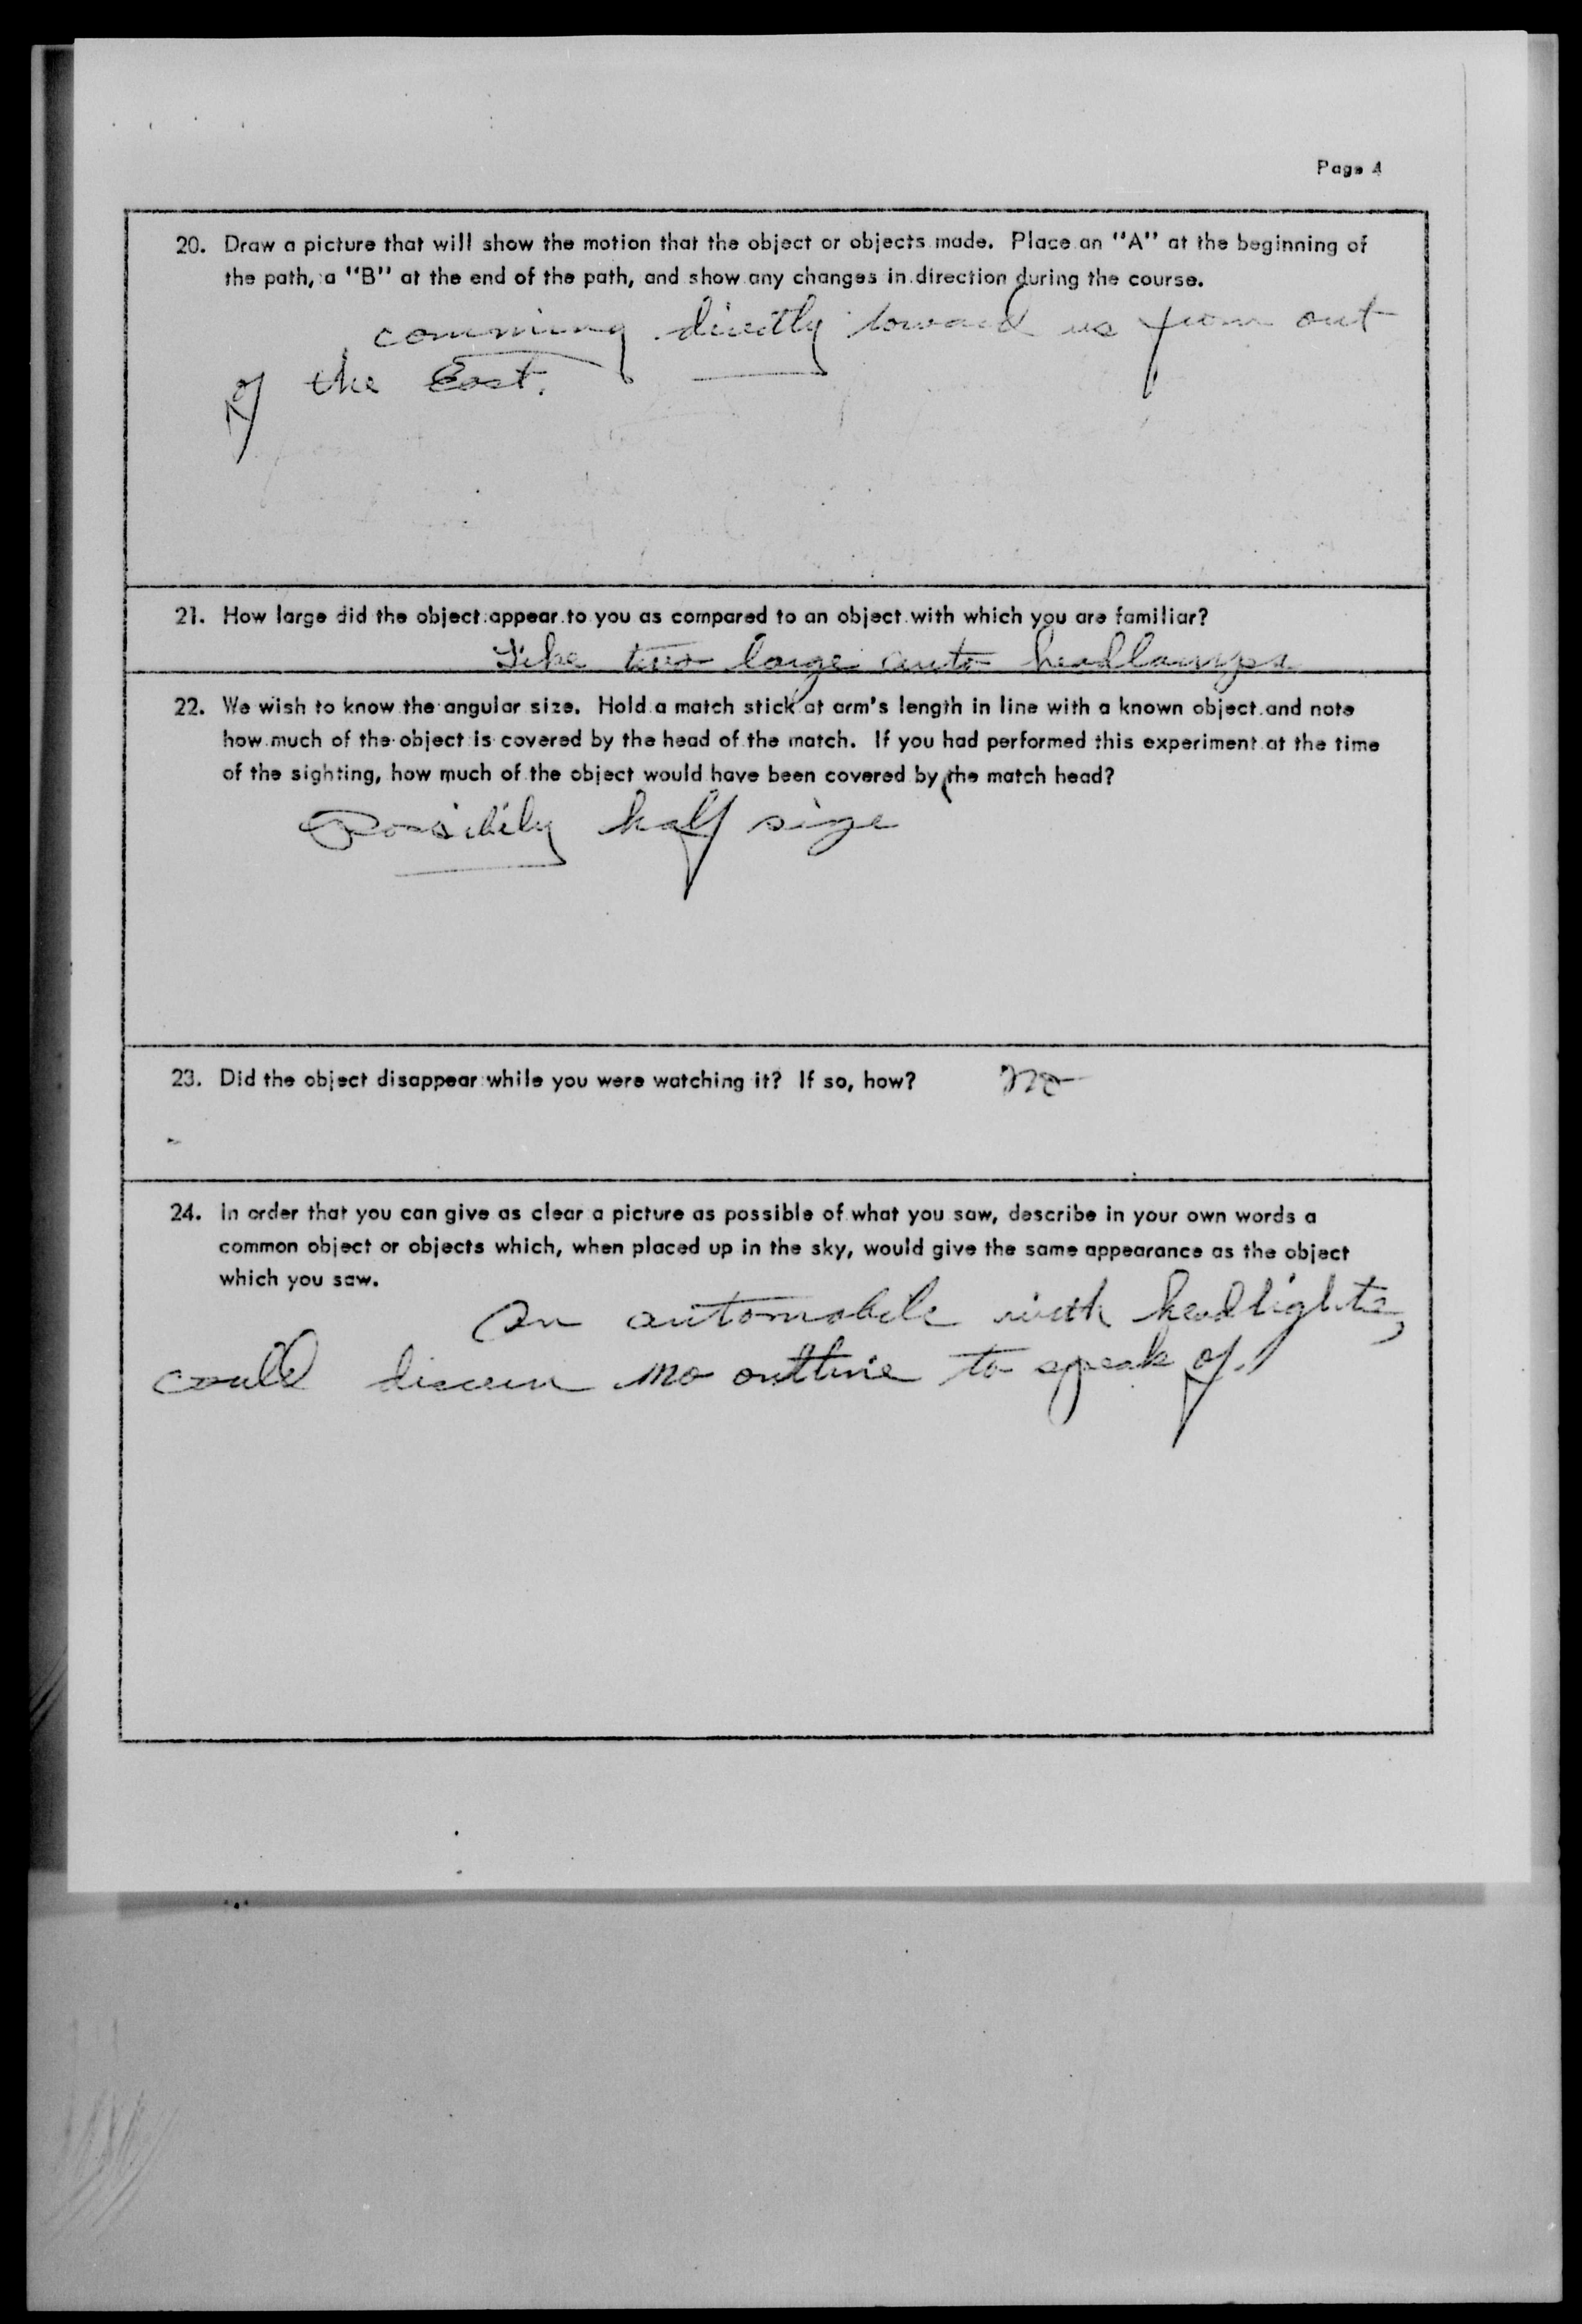 Page 4
20. Draw a picture that will show the motion that the object or objects made. Place an "A" at the beginning of
the path, a "B" at the end of the path, and show any changes in direction during the course.
comming directly toward us from out
of the East.
21. How large did the object appear to you as compared to an object with which you are familiar?
Like two large auto headlamps
22. We wish to know the angular size. Hold a match stick at arm's length in line with a known object and note
how much of the object is covered by the head of the match. If you had performed this experiment at the time
of the sighting, how much of the object would have been covered by the match head?
Possibily half size
23. Did the object disappear while you were watching it? If so, how? no
24. In order that you can give as clear a picture as possible of what you saw, describe in your own words a
common object or objects which, when placed up in the sky, would give the same appearance as the object
which you saw.
An automobile with headlights,
could discern no outline to speak of.